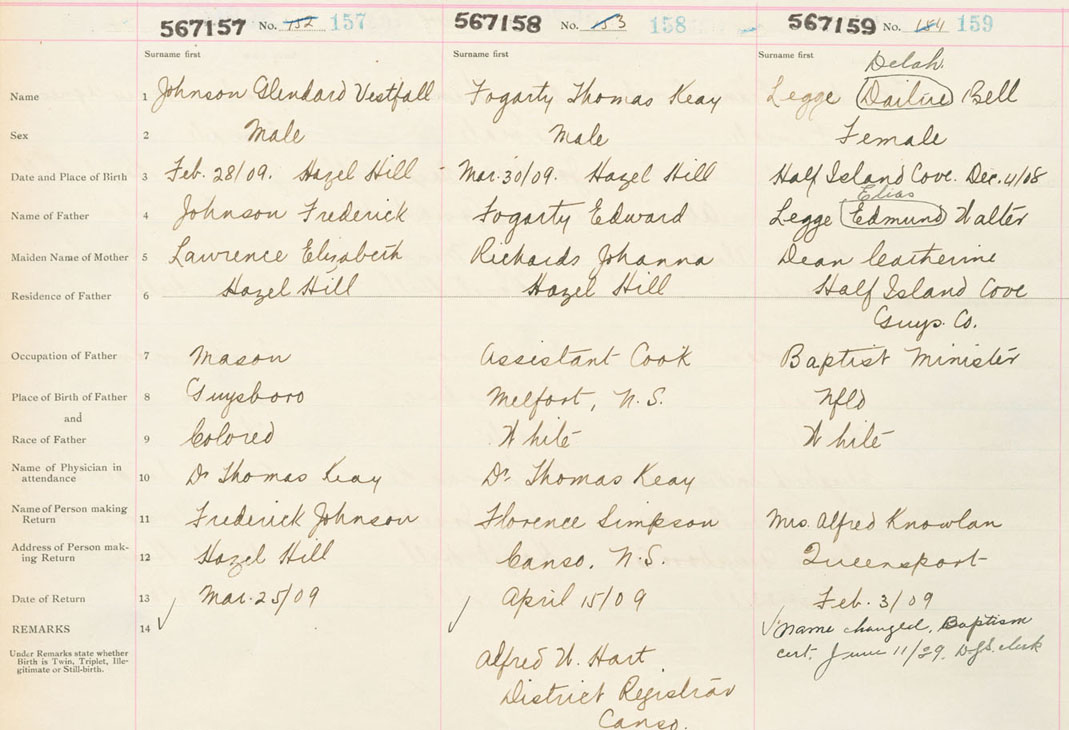 567157 No. 152 157 567158 No. 153 158 567159 No. 154 159
Surname first Surname first Surname first
Delah
Name 1 Johnson Glendard Vestfall Fogarty Thomas Keay Legge Dailie Bell
Sex 2 Male Male Female
Date and Place of Birth 3 Feb. 28/09. Hazel Hill - Mar. 30/09. Hazel Hill Half Island Cove. Dec. 4/08
Elias
Name of Father 4 Johnson Frederick Fogarty Edward Legge Edmund Walter
Maiden Name of Mother 5 Lawrence Elizabeth Richards Johanna Dean Catherine
Residence of Father 6 Hazel Hill Hazel Hill Half Island Cove
Guys. Co.
Occupation of Father 7 Mason Assistant Cook Baptist Minister
Place of Birth of Father 8 Guysboro Melfort, N.S. Nfld
and
Race of Father 9 Colored White White
Name of Physician in
attendance 10 Dr Thomas Keay Dr. Thomas Keay
Name of Person making
Return 11 Frederick Johnson Florence Simpson Mrs. Alfred Knowlan
Address of Person mak-
ing Return 12 Hazel Hill Canso, N.S. Queensport
Date of Return 13 Mar. 25/09 April 15/09 Feb. 3/09
REMARKS 14 name changed, Baptism
Under Remarks state whether
Birth is Twin, Triplet, Ille-
gitimate or Still-birth.
cert. June 11/29. clerk
Alfred W. Hart
District Registrar
Canso.